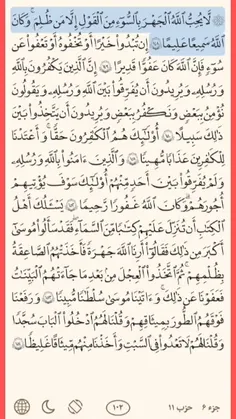 لَّا يُحِبُّ اللَّهُ الْجَهْرَ بِالسُّوءِ مِنَ الْقَوْلِ إِلَّا مَن ظُلِمَ وَكَانَ
اللَّهُ سَمِيعًا عَلِيمًا ۝ إِن تُبْدُوا خَيْرًا أَوْ تُخْفُوهُ أَوْ تَعْفُوا عَن
سُوءٍ فَإِنَّ اللَّهَ كَانَ عَفُوًّا قَدِيرًا ۝ إِنَّ الَّذِينَ يَكْفُرُونَ بِاللَّهِ
وَرُسُلِهِ وَيُرِيدُونَ أَن يُفَرِّقُوا بَيْنَ اللَّهِ وَرُسُلِهِ وَيَقُولُونَ
نُؤْمِنُ بِبَعْضٍ وَنَكْفُرُ بِبَعْضٍ وَيُرِيدُونَ أَن يَتَّخِذُوا بَيْنَ
ذَٰلِكَ سَبِيلًا ۝ أُولَٰئِكَ هُمُ الْكَافِرُونَ حَقًّا وَأَعْتَدْنَا
لِلْكَافِرِينَ عَذَابًا مُّهِينًا ۝ وَالَّذِينَ آمَنُوا بِاللَّهِ وَرُسُلِهِ
وَلَمْ يُفَرِّقُوا بَيْنَ أَحَدٍ مِّنْهُمْ أُولَٰئِكَ سَوْفَ يُؤْتِيهِمْ
أُجُورَهُمْ وَكَانَ اللَّهُ غَفُورًا رَّحِيمًا ۝ يَسْأَلُكَ أَهْلُ
الْكِتَابِ أَن تُنَزِّلَ عَلَيْهِمْ كِتَابًا مِّنَ السَّمَاءِ فَقَدْ سَأَلُوا مُوسَىٰ
أَكْبَرَ مِن ذَٰلِكَ فَقَالُوا أَرِنَا اللَّهَ جَهْرَةً فَأَخَذَتْهُمُ الصَّاعِقَةُ
بِظُلْمِهِمْ ثُمَّ اتَّخَذُوا الْعِجْلَ مِن بَعْدِ مَا جَاءَتْهُمُ الْبَيِّنَاتُ
فَعَفَوْنَا عَن ذَٰلِكَ وَآتَيْنَا مُوسَىٰ سُلْطَانًا مُّبِينًا ۝ وَرَفَعْنَا
فَوْقَهُمُ الطُّورَ بِمِيثَاقِهِمْ وَقُلْنَا لَهُمُ ادْخُلُوا الْبَابَ سُجَّدًا
وَقُلْنَا لَهُمْ لَا تَعْدُوا فِي السَّبْتِ وَأَخَذْنَا مِنْهُم مِّيثَاقًا غَلِيظًا ۝
جزء ٦ حزب ١١ ١٠٢